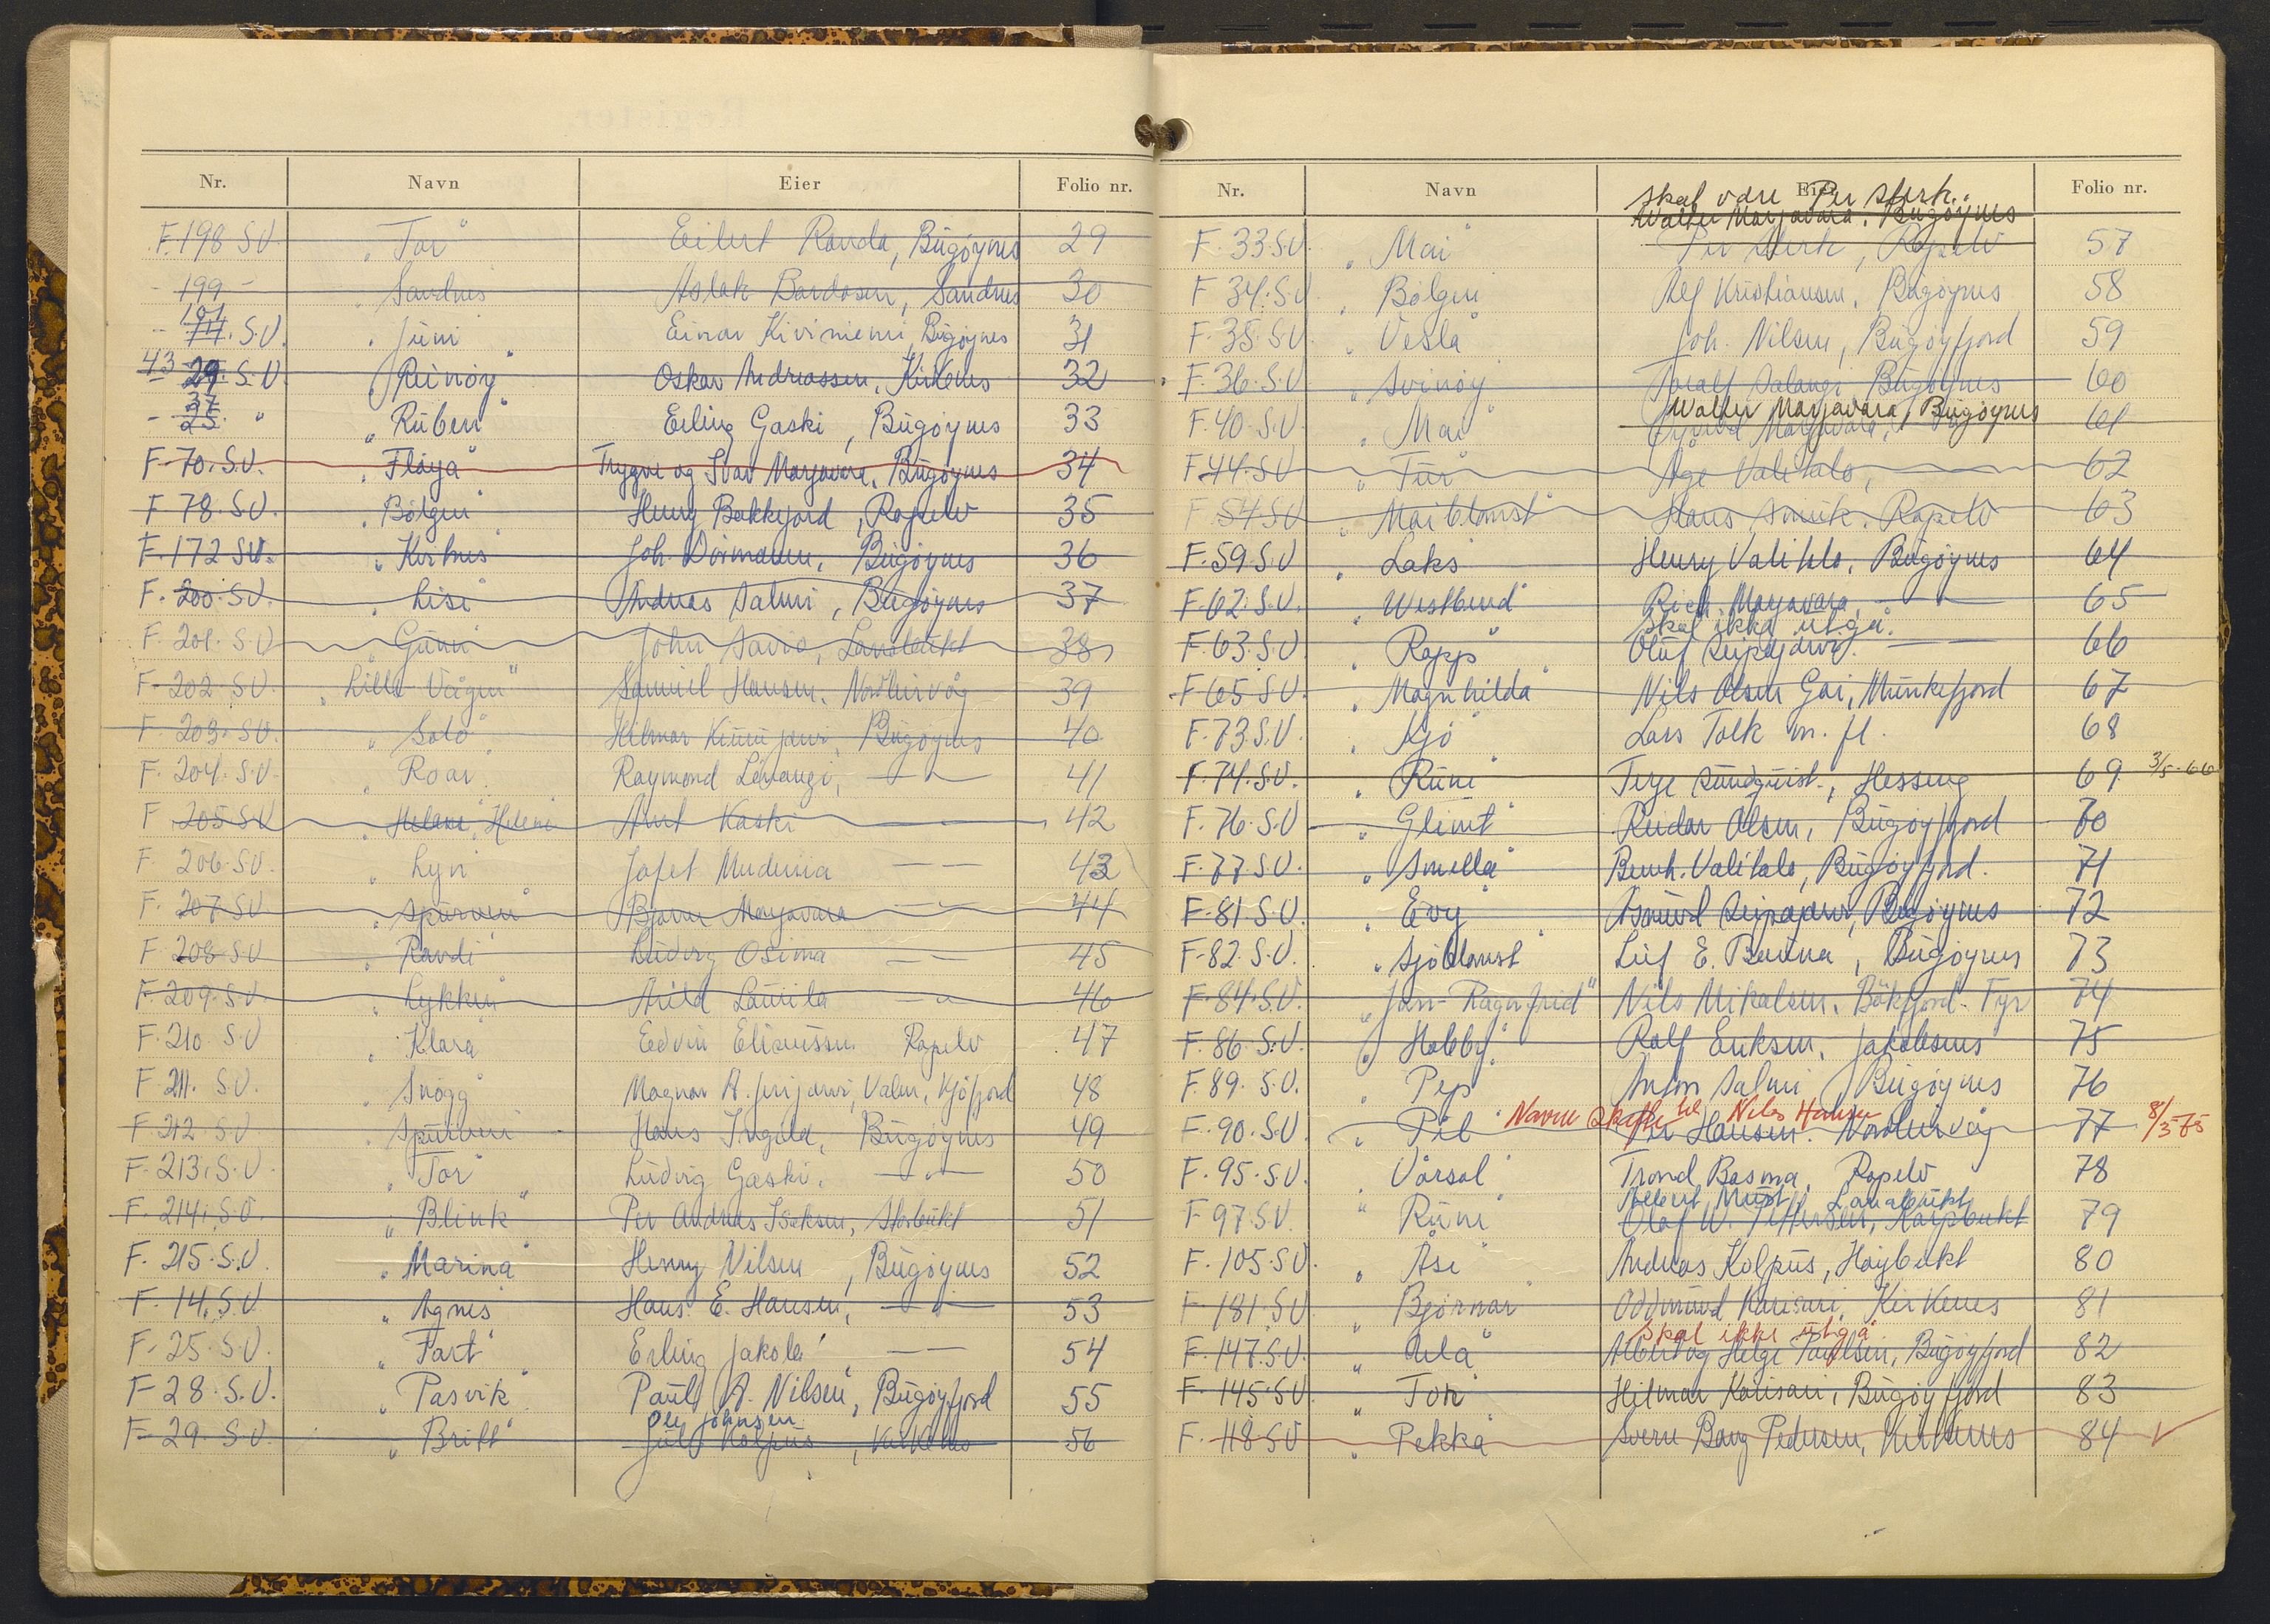 Nr. Navn Eier Folio nr.
F. 198 S.V. "Tor" Eilert Randa, Bugøynes 29
- 199 - "Sandnes" Aslak Bardosen, Sandnes 30
- 101 77. S.V. "Juni" Einar Kiviniemi, Bugøynes 31
43 29. S.V. "Reinøy" Oskar Andreassen, Kirkenes 32
- 37 25. " "Ruben" Erling Gaski, Bugøynes 33
F. 70. S.V. "Fløya" Trygve og Ivar Marjavara, Bugøynes 34
F 78. S.V. "Bølgen" Henry Bakkejord, Ropelv 35
F. 172 S.V. "Kirknes" Joh. Dørmænen, Bugøynes 36
F. 200. S.V. "Lise" Andreas Salmi, Bugøynes 37
F. 201. S.V. John Savio, Lanabukt 38
F. 202. S.V. "Lille Veigen" Samuel Hansen, Nordleirvåg 39
F. 203. S.V. "Solo" Hilmar Bugøynes 40
F. 204. S.V. "Roar" Raymond — " — 41
F 205 S.V. "Heleni" Arnt Kaski — 42
F. 206. S.V. "Lyn" Jafet Mudenia — — 43
F. 207. S.V. "Spurven" Bjarne Marjavara — — 44
F 208. S.V. "Randi" Ludvig Osima — — 45
F. 209. S.V. "Lykken" Arild Lauila — " — 46
F. 210. S.V. "Klara" Edvin Eliassen Ropelv 47
F. 211. S.V. "Snøgg" Magnar A. Jerijærvi, Valen, Kjøfjord 48
F. 212. S.V. "Spurven" Hans Ingala, Bugøynes 49
F. 213. S.V. "Tor" Ludvig Gaski, — " — 50
F. 214. S.V. "Blink" Per Andreas Isaksen, Storbukt 51
F. 215. S.V. "Marina" Henry Nilsen, Bugøynes 52
F. 14. S.V. "Agnes" Hans E. Hansen, — " — 53
F. 25. S.V. "Fart" Erling Jakola, — — 54
F 28. S.V. "Pasvik" Paul A. Nilsen, Bugøyfjord 55
Ole Johnsen
F. 29. S.V. "Britt" Kolpus, Kirkenes 56
Nr. Navn Eier Folio nr.
Skal være Per Sterk.
Walter Marjavara, Bugøynes
F. 33. S.V. "Mai" Per Sterk, Ropelv 57
F 34. S.V. "Bølgen" Alf Kristiansen, Bugøynes 58
F. 35. S.V. "Vesla" Joh. Nilsen, Bugøyfjord 59
F. 36. S.V. "Svinøy" Toralf Salangi Bugøynes 60
Walter Marjavara, Bugøynes
F. 40. S.V. "Mai" Øyvind Marjavara, 61
F. 44. S.V. "Tur" Åge Valitalo, 62
F 54. S.V. "Maiblomst" Hans Smuk, Ropelv 63
F. 59. S.V. "Laks" Henry Valitalo, Bugøynes 64
F. 62. S.V. "Westbend" Rich. Marjavara, — 65
Skal ikke utgå.
F. 63. S.V. "Ropp" Oluf Seipajærvi. — 66
F 65 S.V. "Magnhilda" Nils Olsen Gai, Munkefjord 67
F. 73. S.V. "Kjø" Lars Tolk m. fl. 68
F. 74. S.V. "Runi" Terje Sundquist, Hesseng 69 3/5-66
F. 76. S.V. "Glimt" Reidar Olsen, Bugøyfjord 70
F. 77. S.V. "Smella" Bernh. Valitalo, Bugøyfjord. 71
F. 81. S.V. "Evy" Asmund Seipajærvi, Bugøynes 72
F. 82. S.V. "Sjøblomst" Leif E. Banna, Bugøynes 73
F. 84. S.V. "Jan-Ragnfrid" Nils Mikalsen, Bøkfjord Fyr 74
F. 86. S.V. "Hobby" Rolf Eriksen, Jakobsnes 75
F. 89. S.V. "Pep" Anton Salmi Bugøynes 76
Navn skifte til Nils Hansen
F. 90. S.V. "Pil" Per Hansen. Nordleirvåg 77 8/3-65
F. 95. S.V. "Vårsol" Trond Basma, Ropelv 78
Albert Lanabukt
F 97. S.V. "Runi" Olaf W. Karpbukt 79
F. 105. S.V. "Åse" Andreas Kolpus, Høybukt 80
F. 181. S.V. "Bjørnar" Oddmund Karisari, Kirkenes 81
Skal ikke utgå
F. 147. S.V. "Ula" Albert og Helge Paulsen, Bugøyfjord 82
F. 145. S.V. "Tor" Hilmar Karisari, Bugøyfjord 83
F. 118. S.V. "Pekka" Sverre Bang Pedersen, Kirkenes 84 V